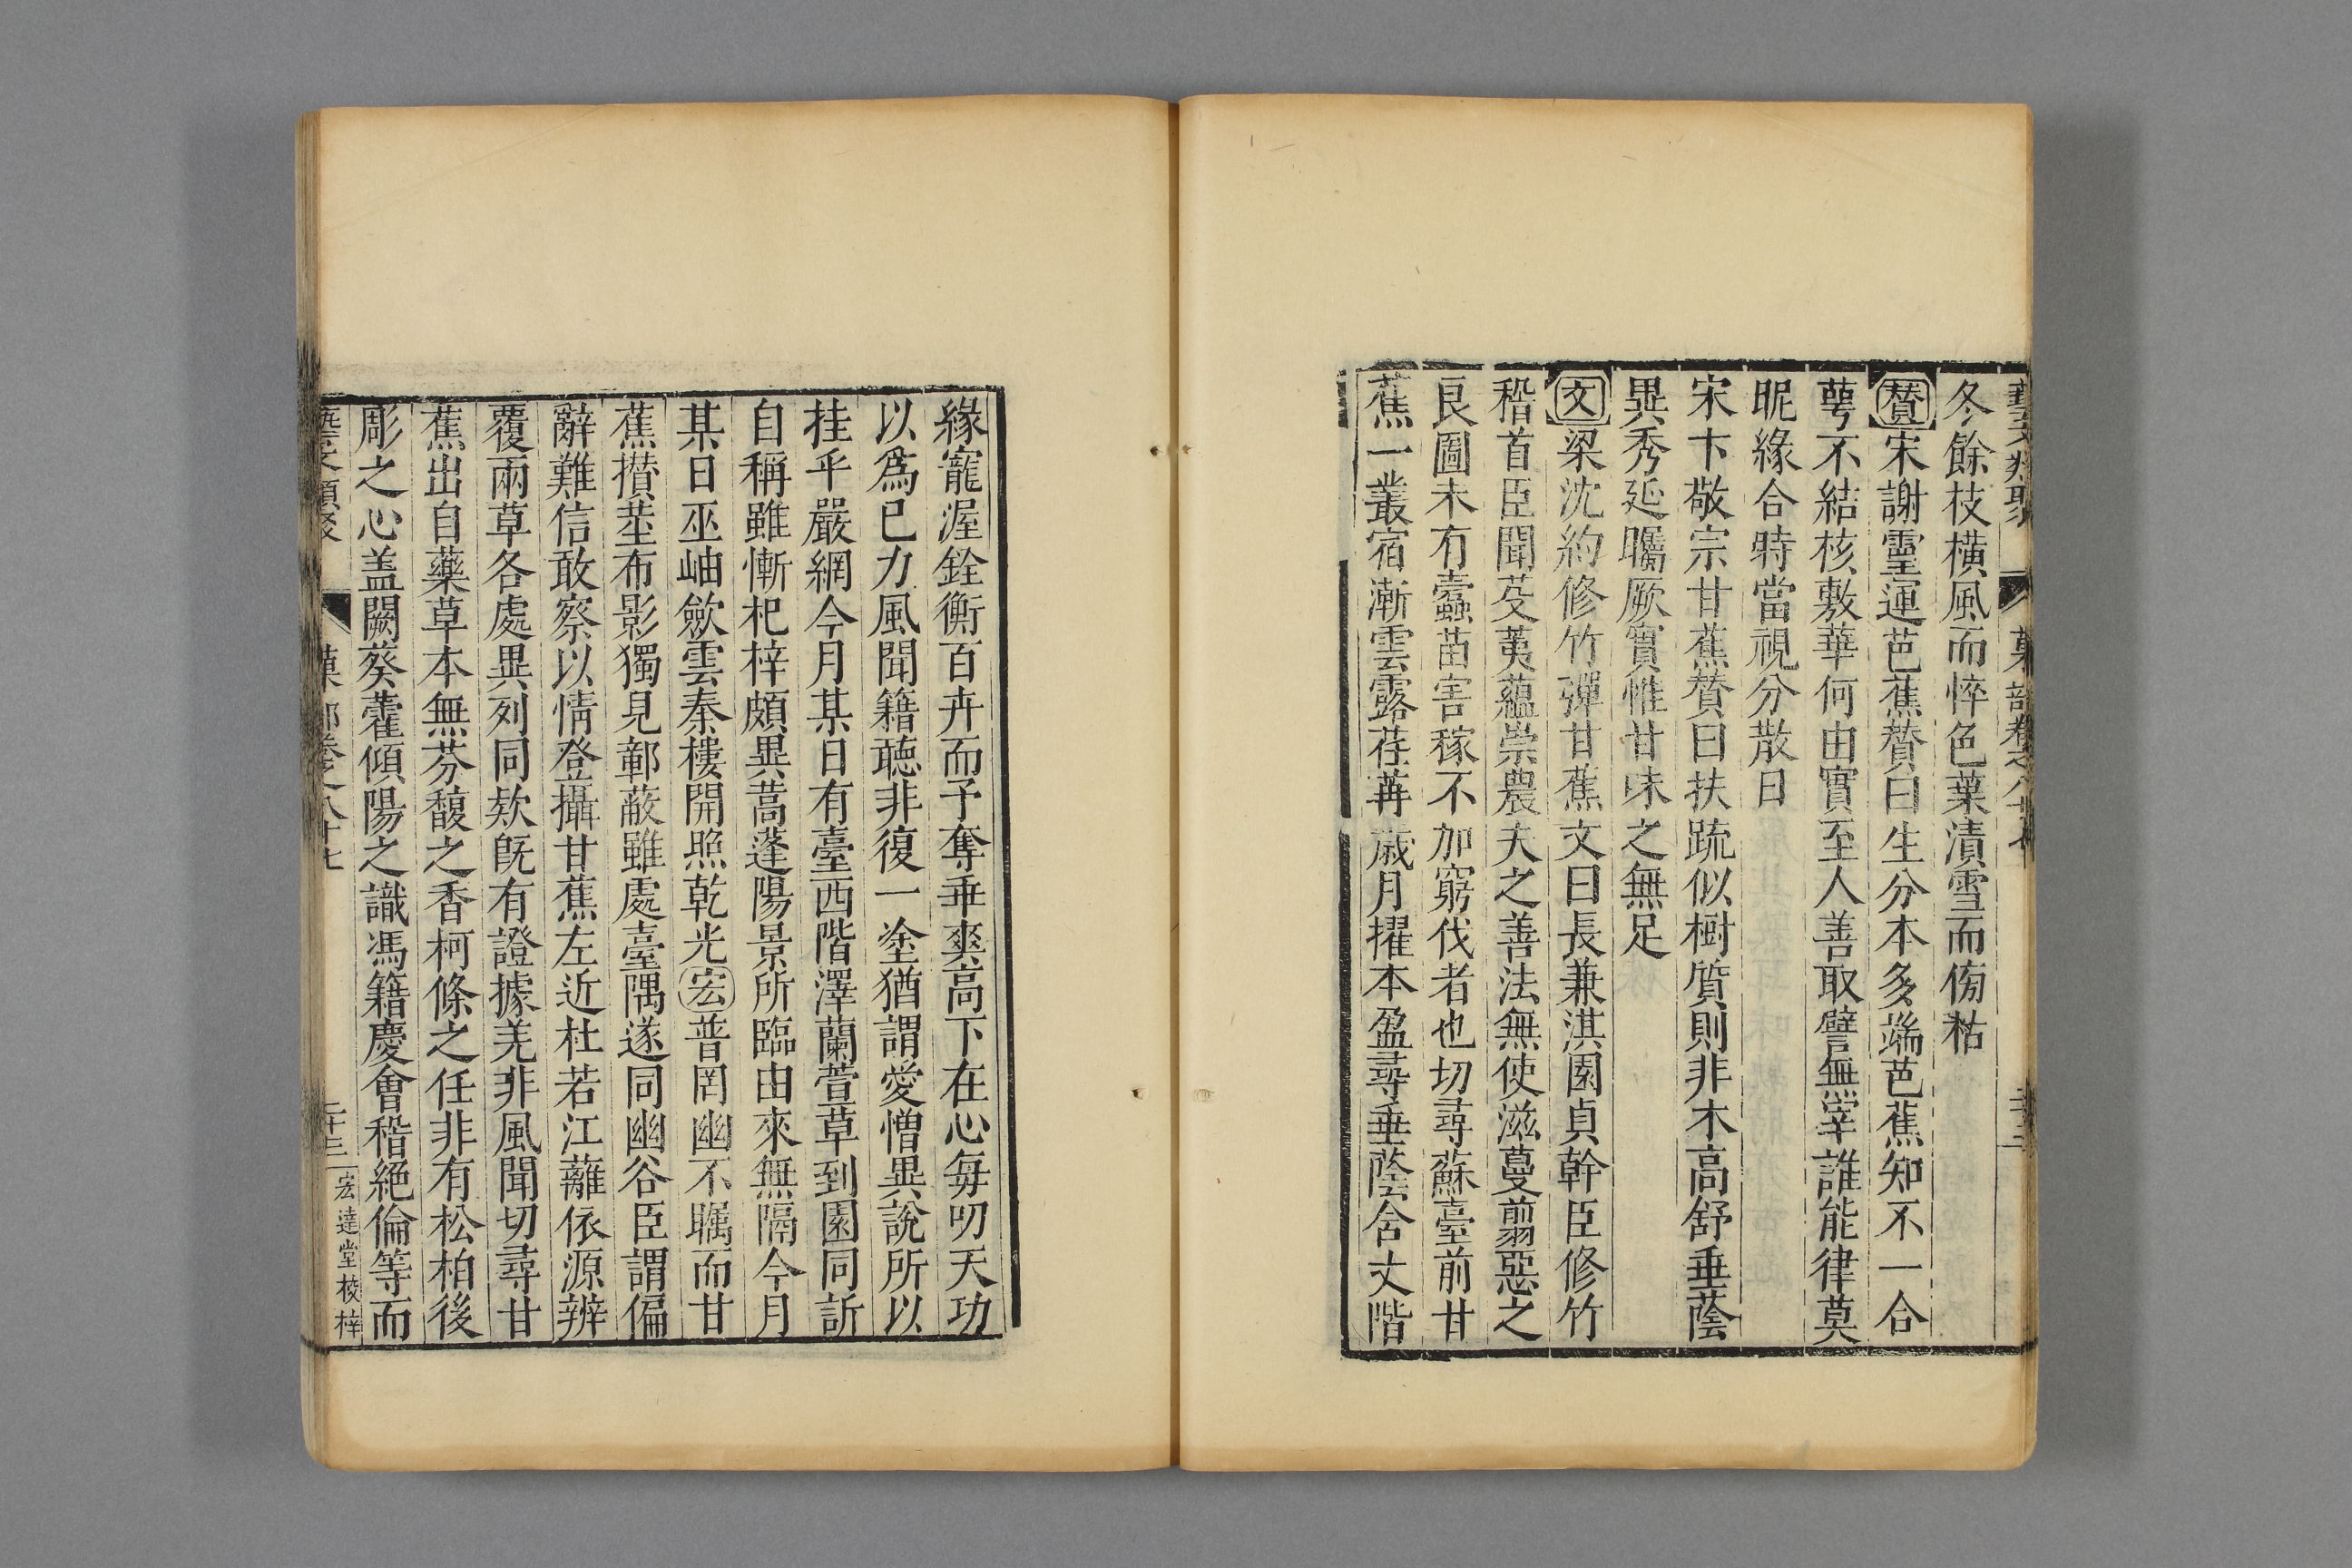 冬餘枝橫風而悴色葉漬雪而傍粘
贊宋謝靈運芭蕉贊曰生分本多端芭蕉知不一合
萼不結核敷華何由實至人善取譬無宰誰能律莫
昵緣合時當視分散日
宋卞敬宗甘蕉贊曰扶踈似樹質則非木高舒垂蔭
異秀延矚厥實惟甘味之無足
文梁沈約修竹彈甘蕉文曰長兼淇園貞幹臣修竹
稽首臣聞芟荑蘊崇農夫之善法無使滋蔓翦惡之
良圖未有蠹苗害稼不加窮伐者也切尋蘇臺前甘
蕉一叢宿漸雲露荏苒歲月擢本盈尋垂蔭含丈階
緣寵渥銓衡百卉而予奪乖爽高下在心每叨天功
以爲已力風聞籍聽非復一塗猶謂愛憎異說所以
挂乎嚴網今月某日有臺西階澤蘭萱草到園同訢
自稱雖慚杞梓頗異蒿蓬陽景所臨由來無隔今月
某日巫岫歛雲秦樓開照乾光宏普罔幽不矚而甘
蕉攢莖布影獨見鄣蔽雖處臺隅遂同幽谷臣謂偏
辭難信敢察以情登攝甘蕉左近杜若江蘺依源辨
覆兩草各處異列同欵旣有證據羌非風聞切尋甘
蕉出自藥草本無芬馥之香柯條之任非有松柏後
彫之心盖闕葵藿傾陽之識馮籍慶會稽絕倫等而
藝文類聚 菓部卷之八十七 二十三 宏達堂校梓